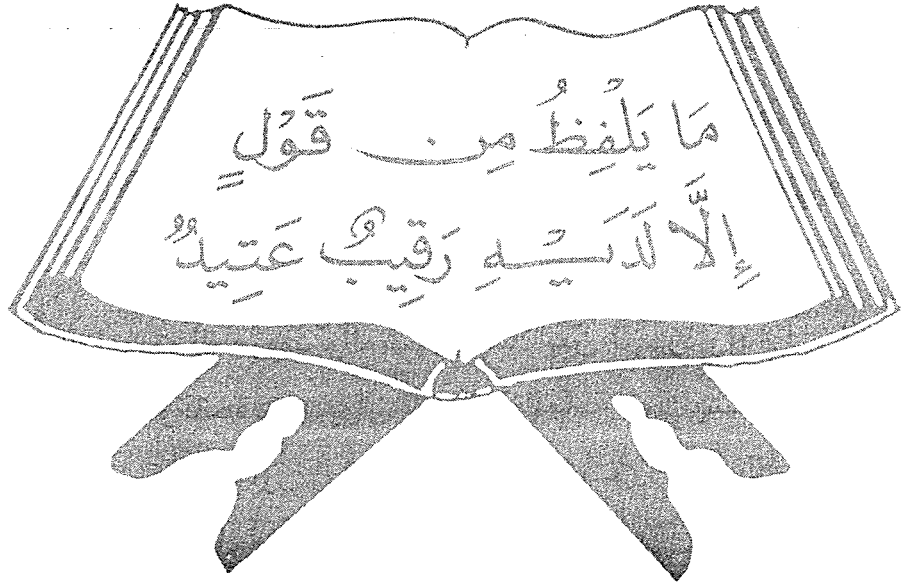 مَا يَلْفِظُ مِن قَوْلٍ
إِلَّا لَدَيْهِ رَقِيبٌ عَتِيدٌ